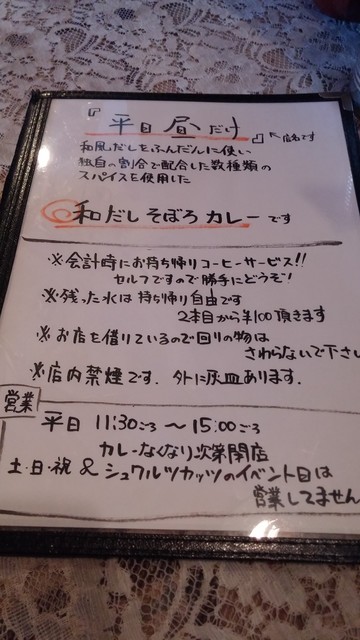 『平日 昼 だけ』←店名です
和風だしをふんだんに使い
独自の割合で配合した数種類の
スパイスを使用した
◎和だしそぼろカレーです
※会計時にお持ち帰りコーヒーサービス!!
セルフですので勝手にどうぞ!
※残った水は持ち帰り自由です
2本目から¥100頂きます
※お店を借りているので回りの物は
さわらないで下さい
※店内禁煙です. 外に灰皿あります.
営業
平日 11:30ごろ 〜 15:00ごろ
カレーなくなり次第閉店
土・日・祝 & シュワルツカッツのイベント日は
営業してません